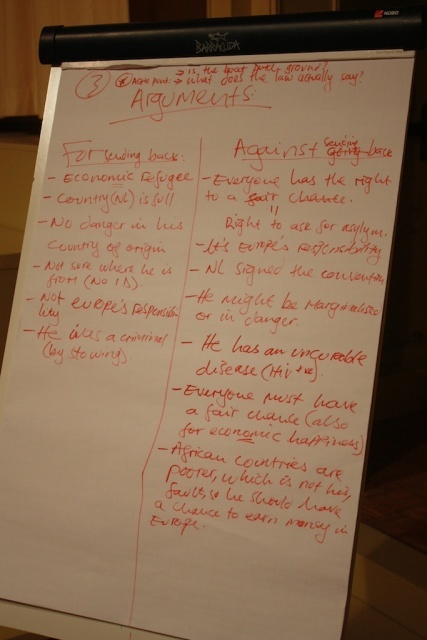 NOBO
BARRACUDA
3
→ is the boat Dutch ground?
more point: → what does the law actually say?
Arguments:
For sending back:
- Economic Refugee
- Country (NL) is full
- No danger in his
Country of origin
- Not sure where he is
from (No ID)
- Not Europe's responsibi
lity
- He is/was a criminal
(by stowing)
Against sending back
- Everyone has the right
to a fair chance.
Right to ask for asylum.
- It's Europe's responsibility
- NL signed the convention
- He might be Marginalised
or in danger.
- He has an uncurable
disease (Hiv+ve).
- Everyone must have
a fair chance (also
for economic happiness)
- African countries are
poorer, which is not his
fault, so he should have
a chance to earn money in
Europe.